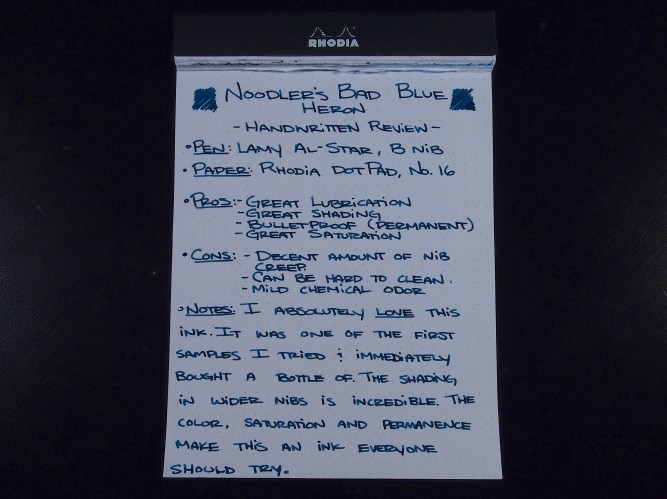 RHODIA
NOODLER'S BAD BLUE
HERON
- HANDWRITTEN REVIEW -
• PEN: LAMY AL-STAR, B NIB
• PAPER: RHODIA DOTPAD, NO. 16
• PROS: - GREAT LUBRICATION
- GREAT SHADING
- BULLETPROOF (PERMANENT)
- GREAT SATURATION
• CONS: - DECENT AMOUNT OF NIB
CREEP.
- CAN BE HARD TO CLEAN.
- MILD CHEMICAL ODOR
• NOTES: I ABSOLUTELY LOVE THIS
INK. IT WAS ONE OF THE FIRST
SAMPLES I TRIED & IMMEDIATELY
BOUGHT A BOTTLE OF. THE SHADING
IN WIDER NIBS IS INCREDIBLE. THE
COLOR, SATURATION AND PERMANENCE
MAKE THIS AN INK EVERYONE
SHOULD TRY.